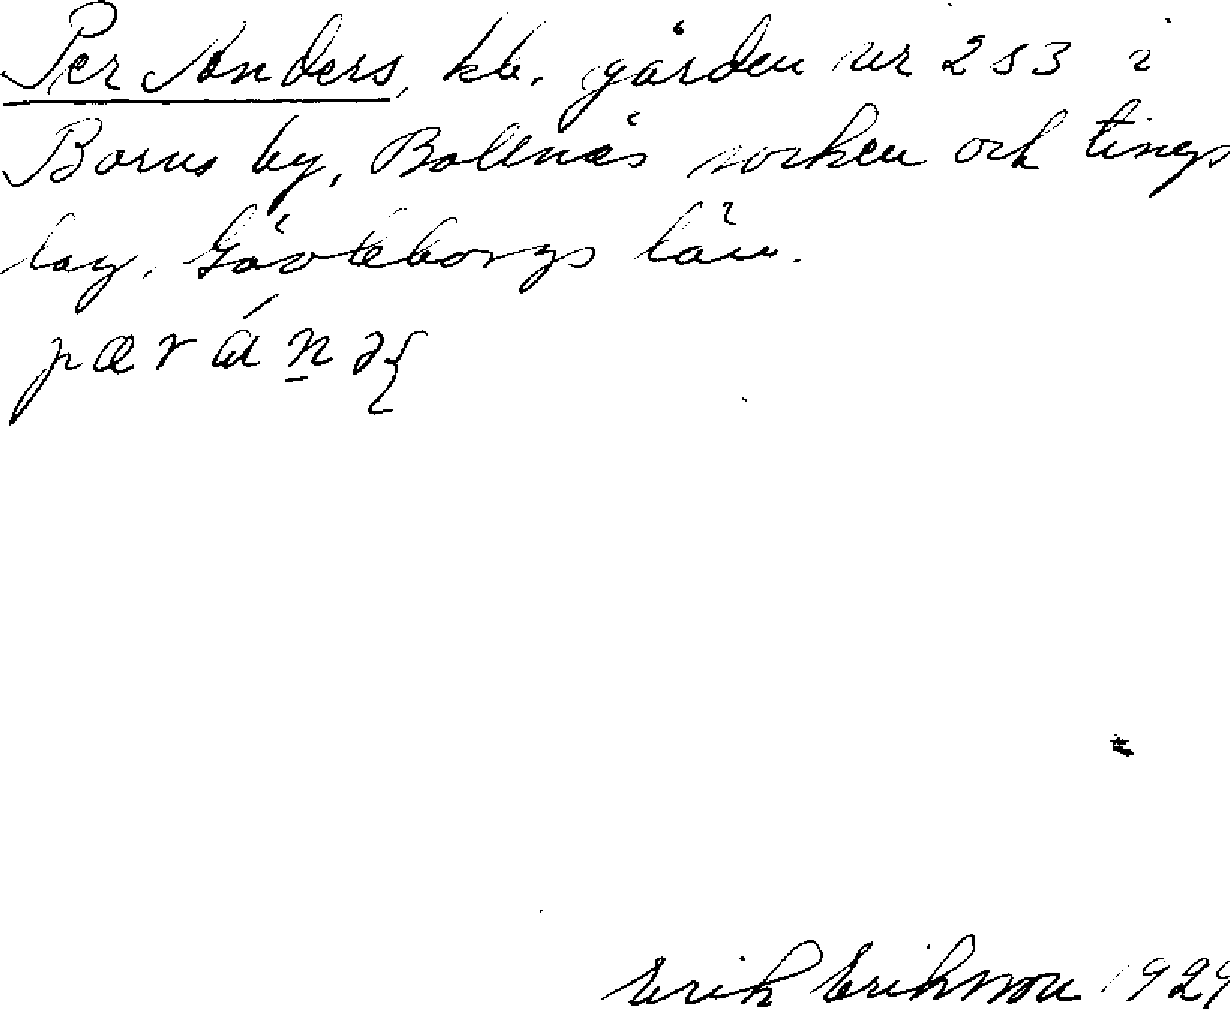 Per Anders, kb. gården nr 253 i
Borns by, Bollnäs socken och tings
lag, Gävleborgs län.
pærán̠əʂ
Erik Eriksson 1929